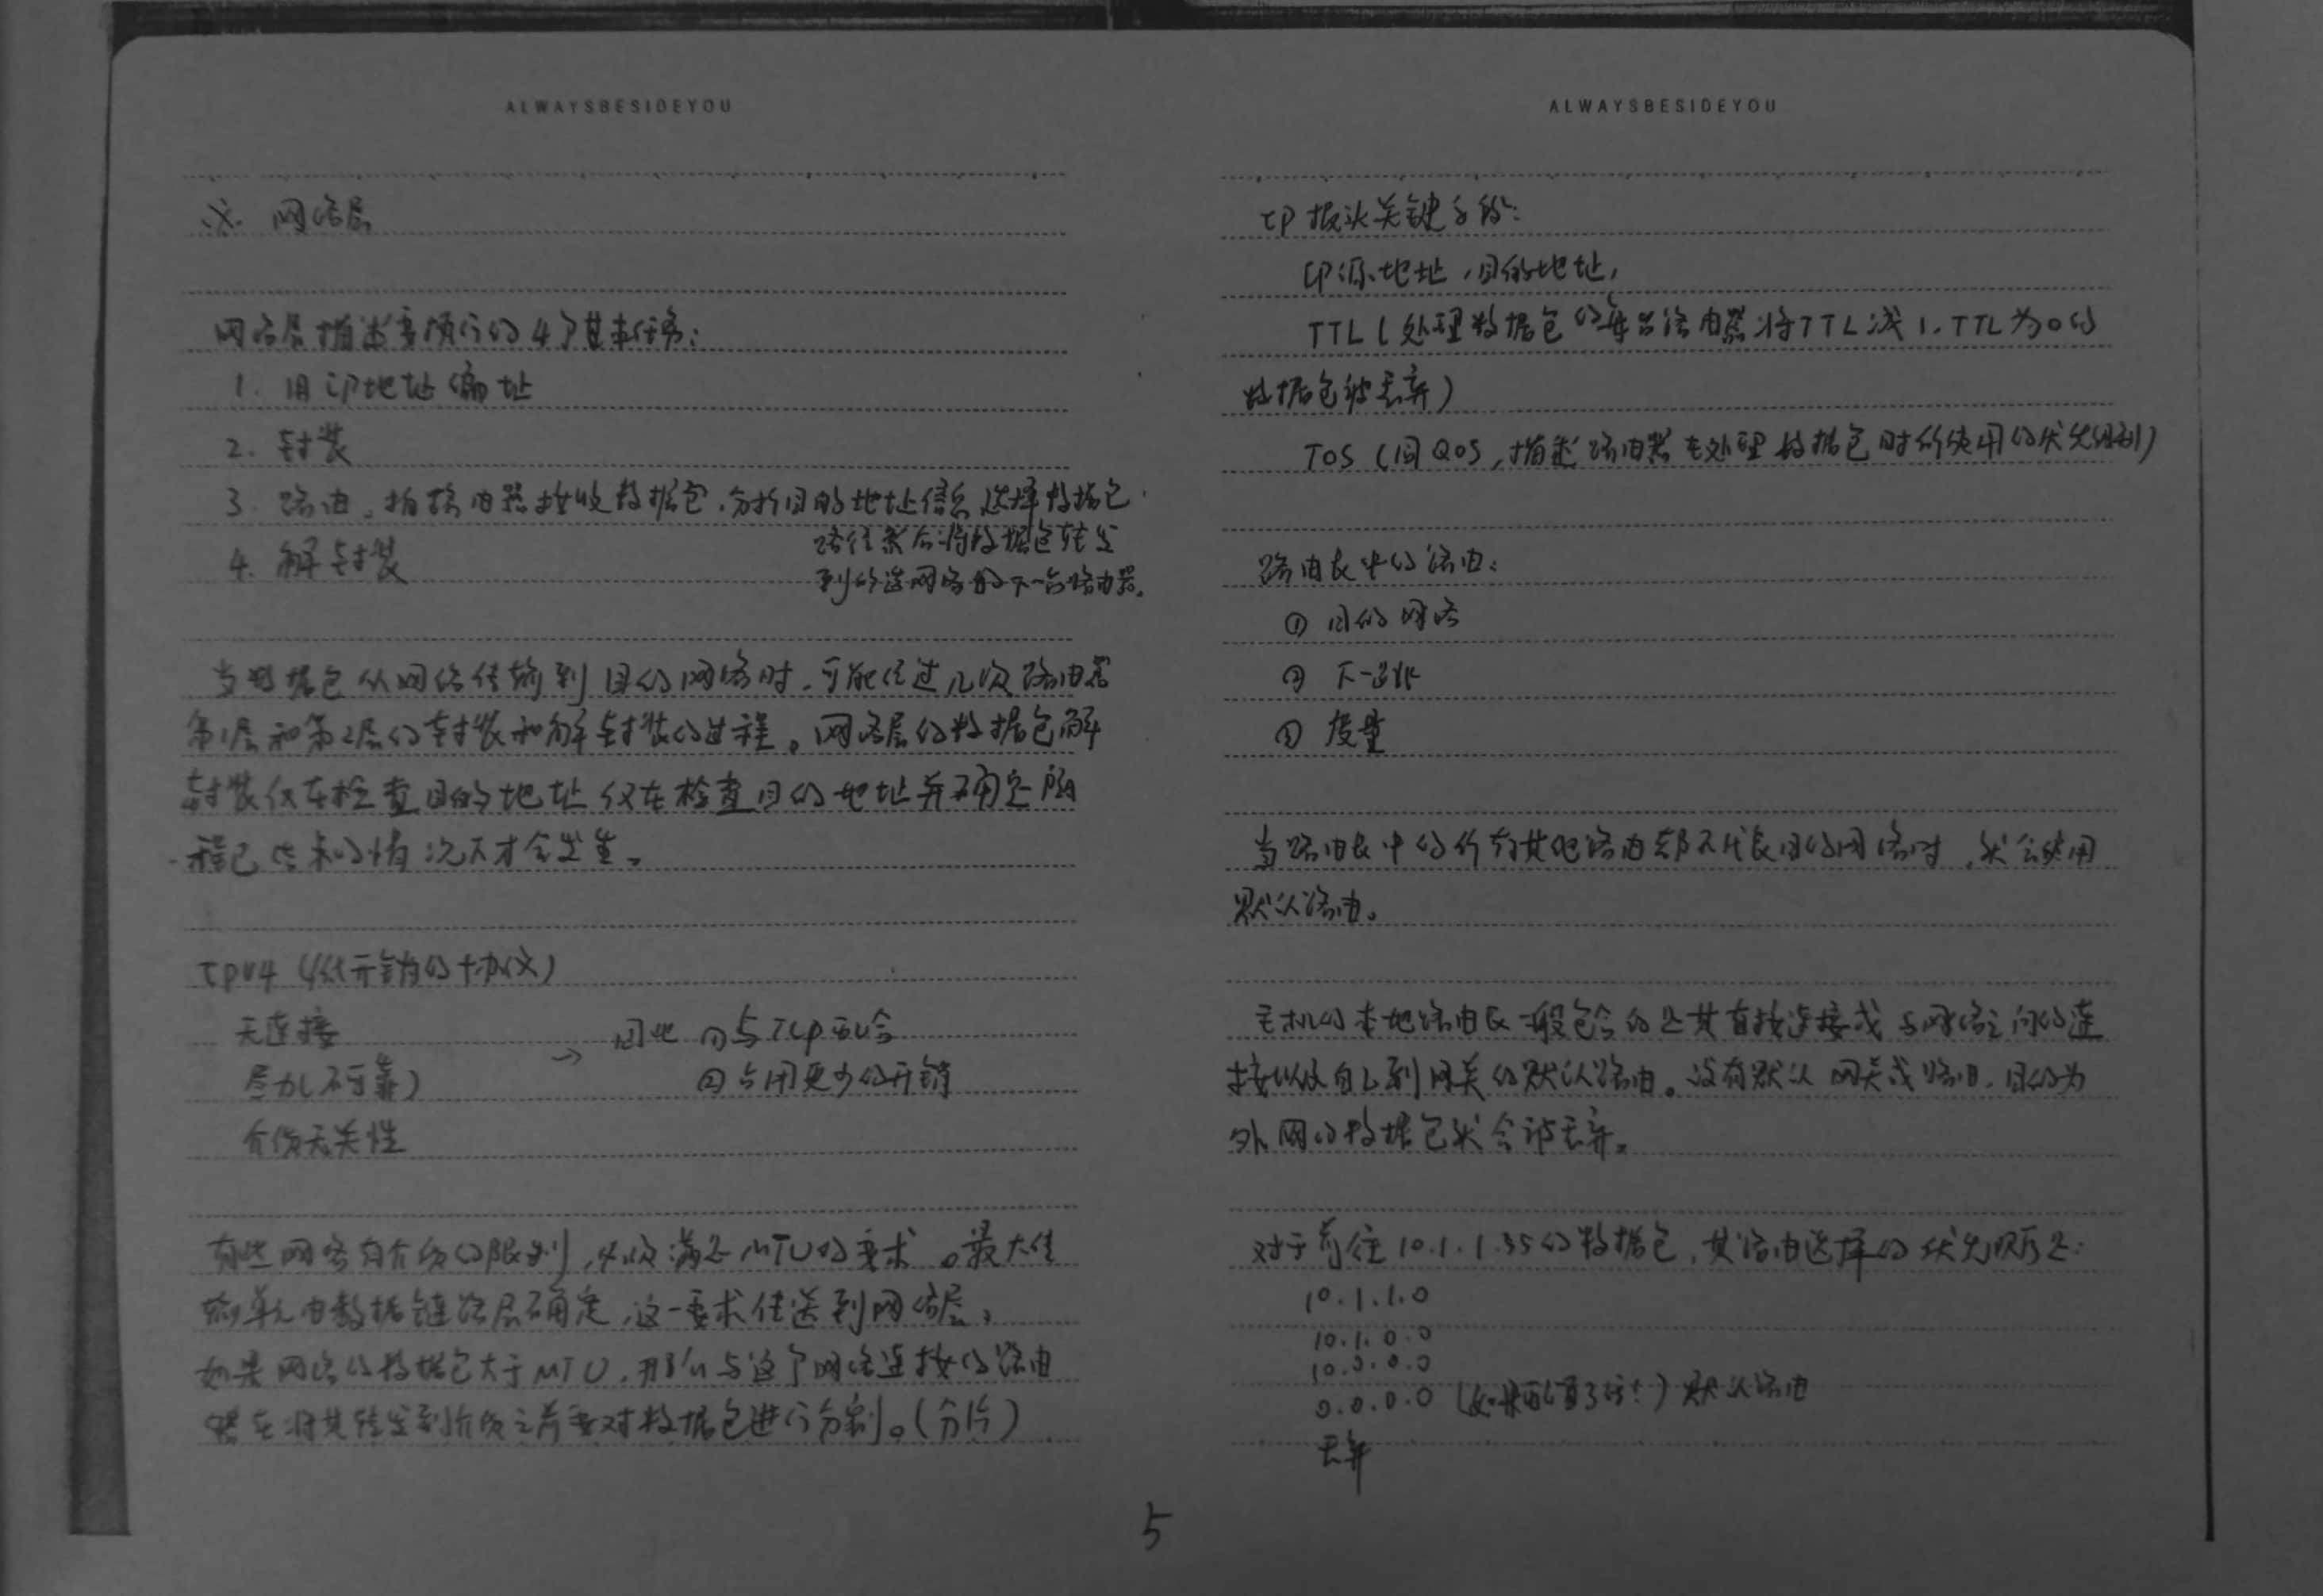 ALWAYSBESIDEYOU
※ 网络层
网络层描述要执行的4个基本任务:
1. 用IP地址编址
2. 封装
3. 路由, 指路由器接收数据包, 分析目的地址信息, 选择数据包
路径然后将数据包转发
到所选网络的下一台路由器。
4. 解封装
当数据包从网络传输到目的网络时, 可能经过几次路由器
第1层和第2层的封装和解封装的过程。网络层的数据包解
封装仅在检查目的地址 仅在检查目的地址并确定
程已结束的情况下才会发生。
IPv4 (低开销的协议)
无连接
尽力(不可靠)
介质无关性
→ 因此 ①与TCP配合
②占用更少的开销
有些网络有介质的限制, 必须满足MTU的要求。最大传
输单元由数据链路层确定, 这一要求传送到网络层,
如果网络的数据包大于MTU, 那么与这个网络连接的路由
器在将其转发到介质之前要对数据包进行分割。(分片)
ALWAYSBESIDEYOU
IP报头关键字段:
IP源地址, 目的地址,
TTL (处理数据包的每台路由器将TTL减1, TTL为0的
数据包被丢弃)
TOS (同QOS, 描述路由器在处理数据包时所使用的优先级别)
路由表中的路由:
① 目的网络
② 下一跳
③ 度量
当路由表中的所有其他路由都不代表目的网络时, 就会使用
默认路由。
主机的本地路由表一般包含的是其直接连接或与网络之间的连
接以及自己到网关的默认路由。没有默认网关或路由, 目的为
外网的数据包就会被丢弃。
对于前往10.1.1.55的数据包, 其路由选择的优先顺序是:
10.1.1.0
10.1.0.0
10.0.0.0
0.0.0.0 (如果配置了话!) 默认路由
丢弃
5